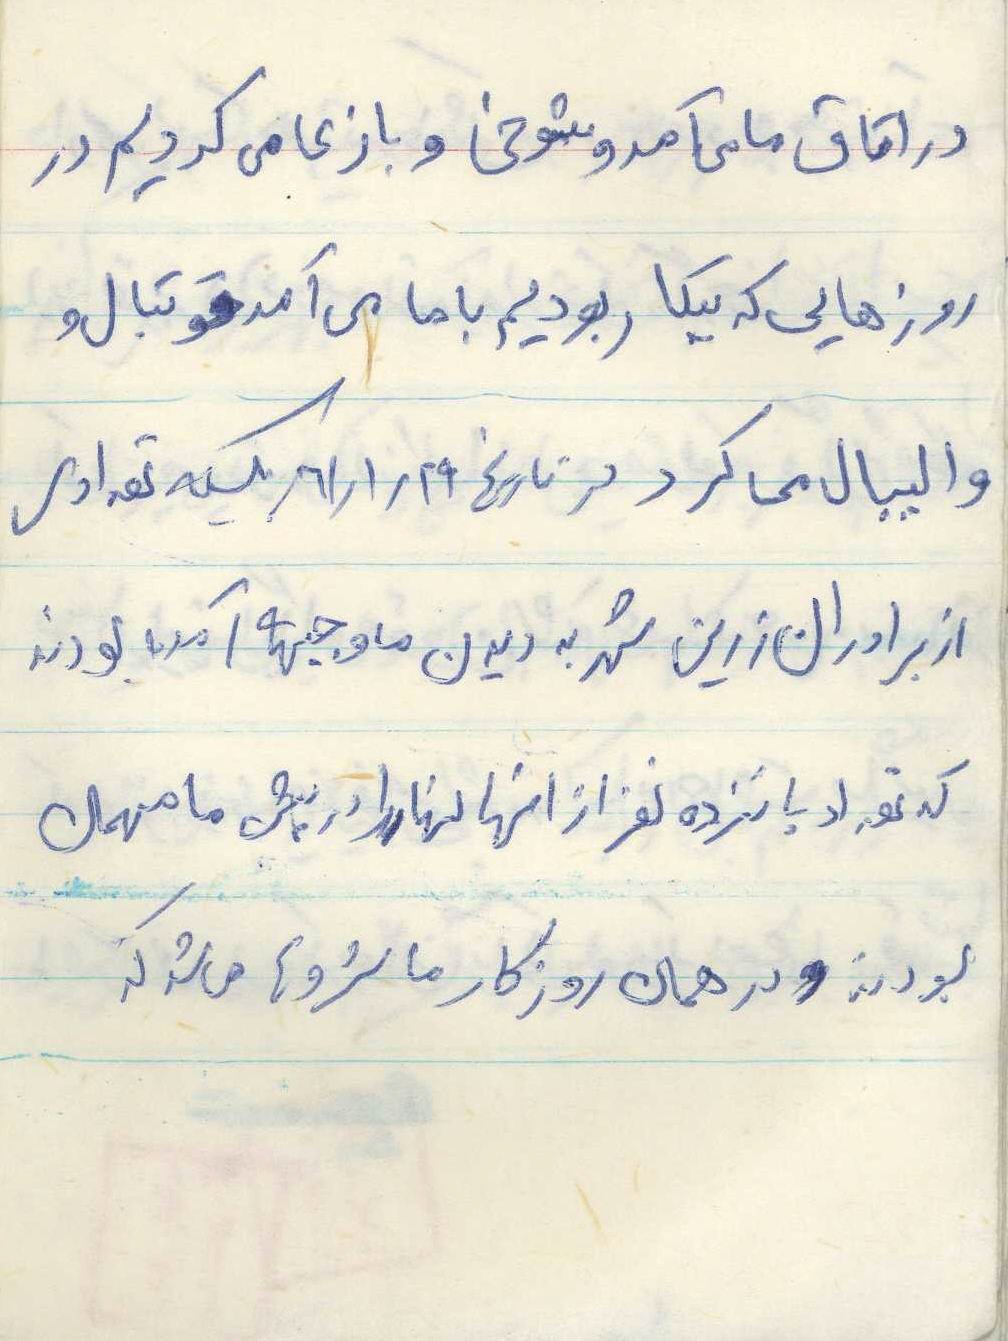 در اتاق ما می آمد و شوخی و بازی می کردیم در
روزهایی که بیکار بودیم با ما می آمد فوتبال و
والیبال می کرد در تاریخ ۲۹ر۱ر۶۱ تعدادی
از برادران زرین شهر به دیدن ما و جبهه آمده بودند
که تعداد پانزده نفر از انها نهار را در پیش ما مهمان
بودند و در همان روز کار ما شروع می شد که